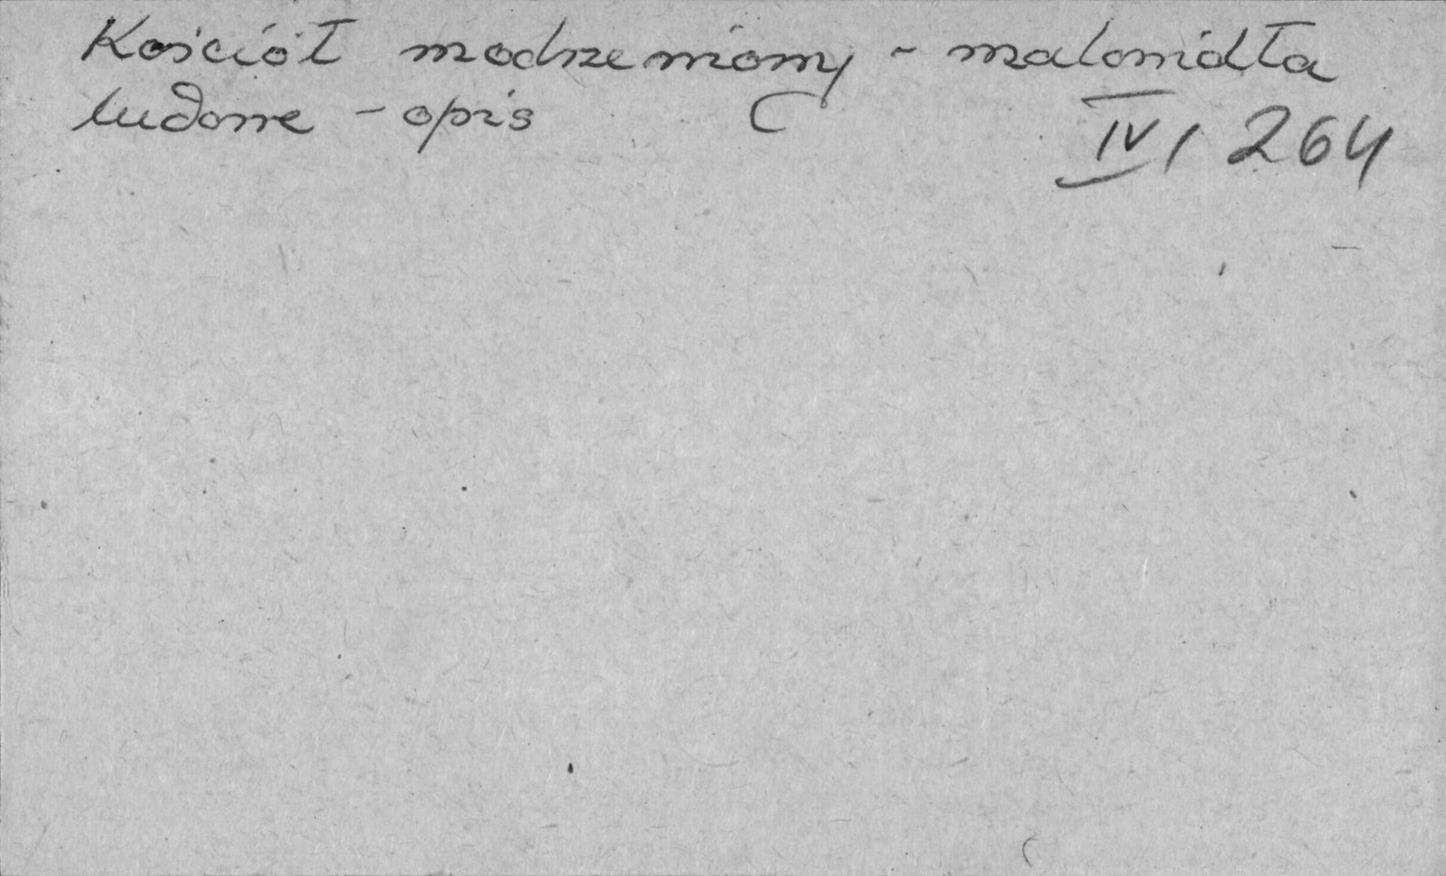 Kościół modrzewiowy - malowidła
ludowe - opis
IV/264